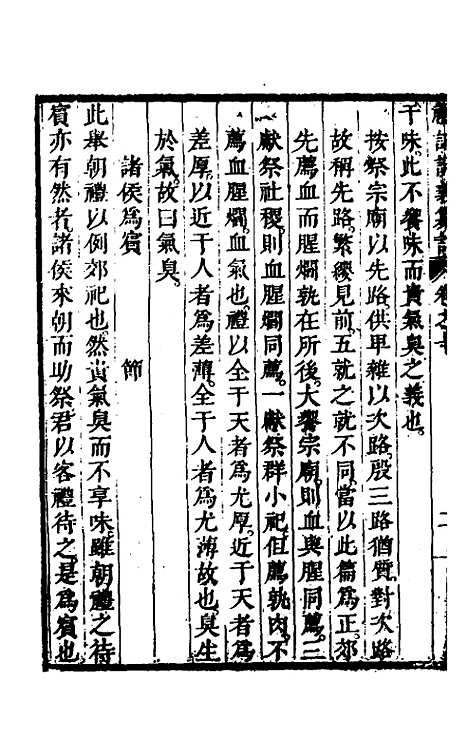 卷之十
于味此不饗味而貴氣臭之義也
按祭宗廟以先路供卑雜以次路殷三路猶質對次路
故稱先路繁纓見前五就之就不同當以此篇為正郊
先薦血而腥爓孰在所後大饗宗廟則血與腥同薦三
獻祭社稷則血腥爓同薦一獻祭群小祀但薦孰肉不
薦血腥爓血氣也禮以全于天者為尤厚近于天者為
差厚以近于人者為差薄全于人者為尤薄故也臭生
於氣故曰氣臭
諸侯為賓　節
此舉朝禮以例郊祀也然貴氣臭而不享味雖朝禮之待
賓亦有然者諸侯來朝而助祭君以客禮待之是為賓也